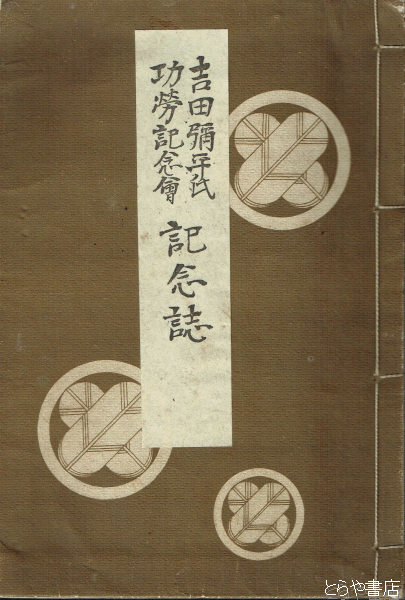 吉田彌平氏
功勞記念會
記念誌
とらや書店